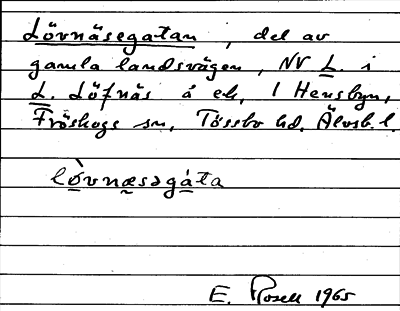 Lövnäsegatan, del av
gamla landsvägen, NV L. i
L. Löfnäs å ek, 1 Hensbyn,
Fröskogs sn, Tössbo hd, Älvsb. l.
lò̱vnæsəgá̱ta
E. Rosell 1965